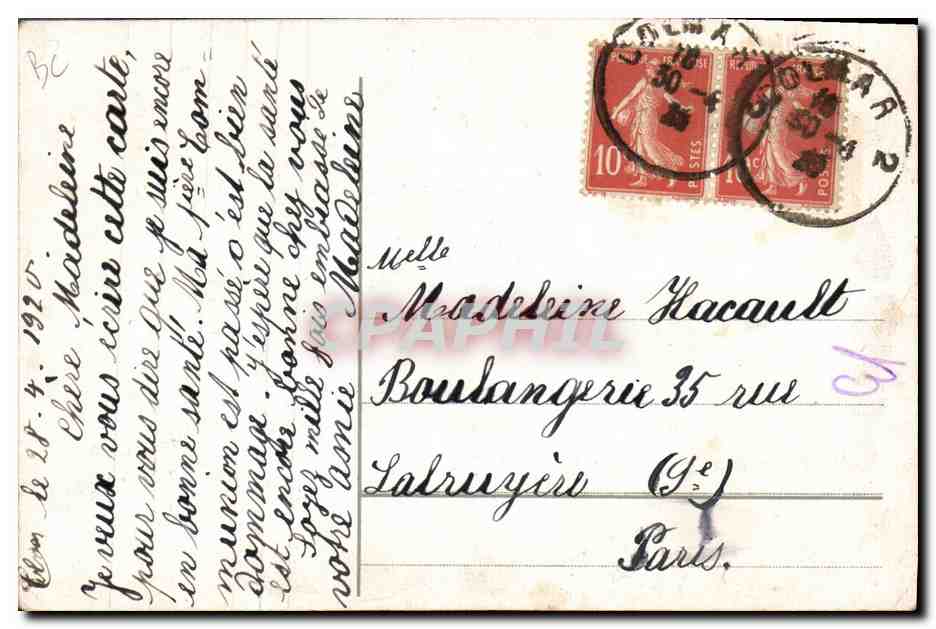 le 28. 4. 1920.
Chère Madeleine
Je veux vous écrire cette carte,
pour vous dire que je suis encore
en bonne santé. Ma 1ière Com-
munion est passé c'est bien
dommage. J'espère que la santé
est encore bonne chez vous
Soyez mille fois embrassé de
votre amie Madeleine
COLMAR
30-4
COLMAR 2
30-4
POSTES
10
POSTES
Melle
Madeleine Hacault
Boulangerie 35 rue
Labruyère (9e)
Paris.
CPAPHIL